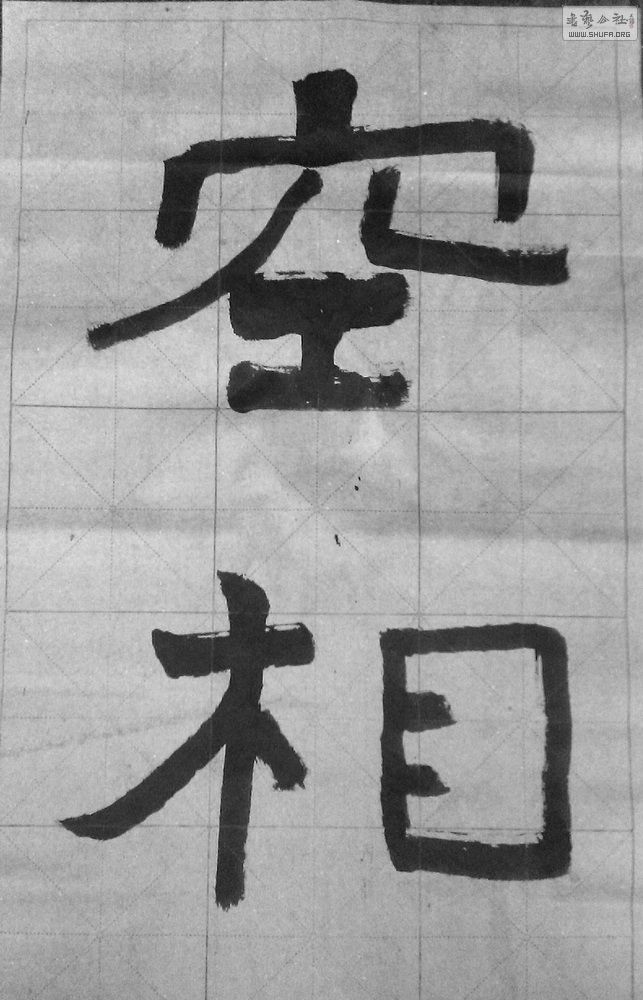 空
相
書藝公社
WWW.SHUFA.ORG